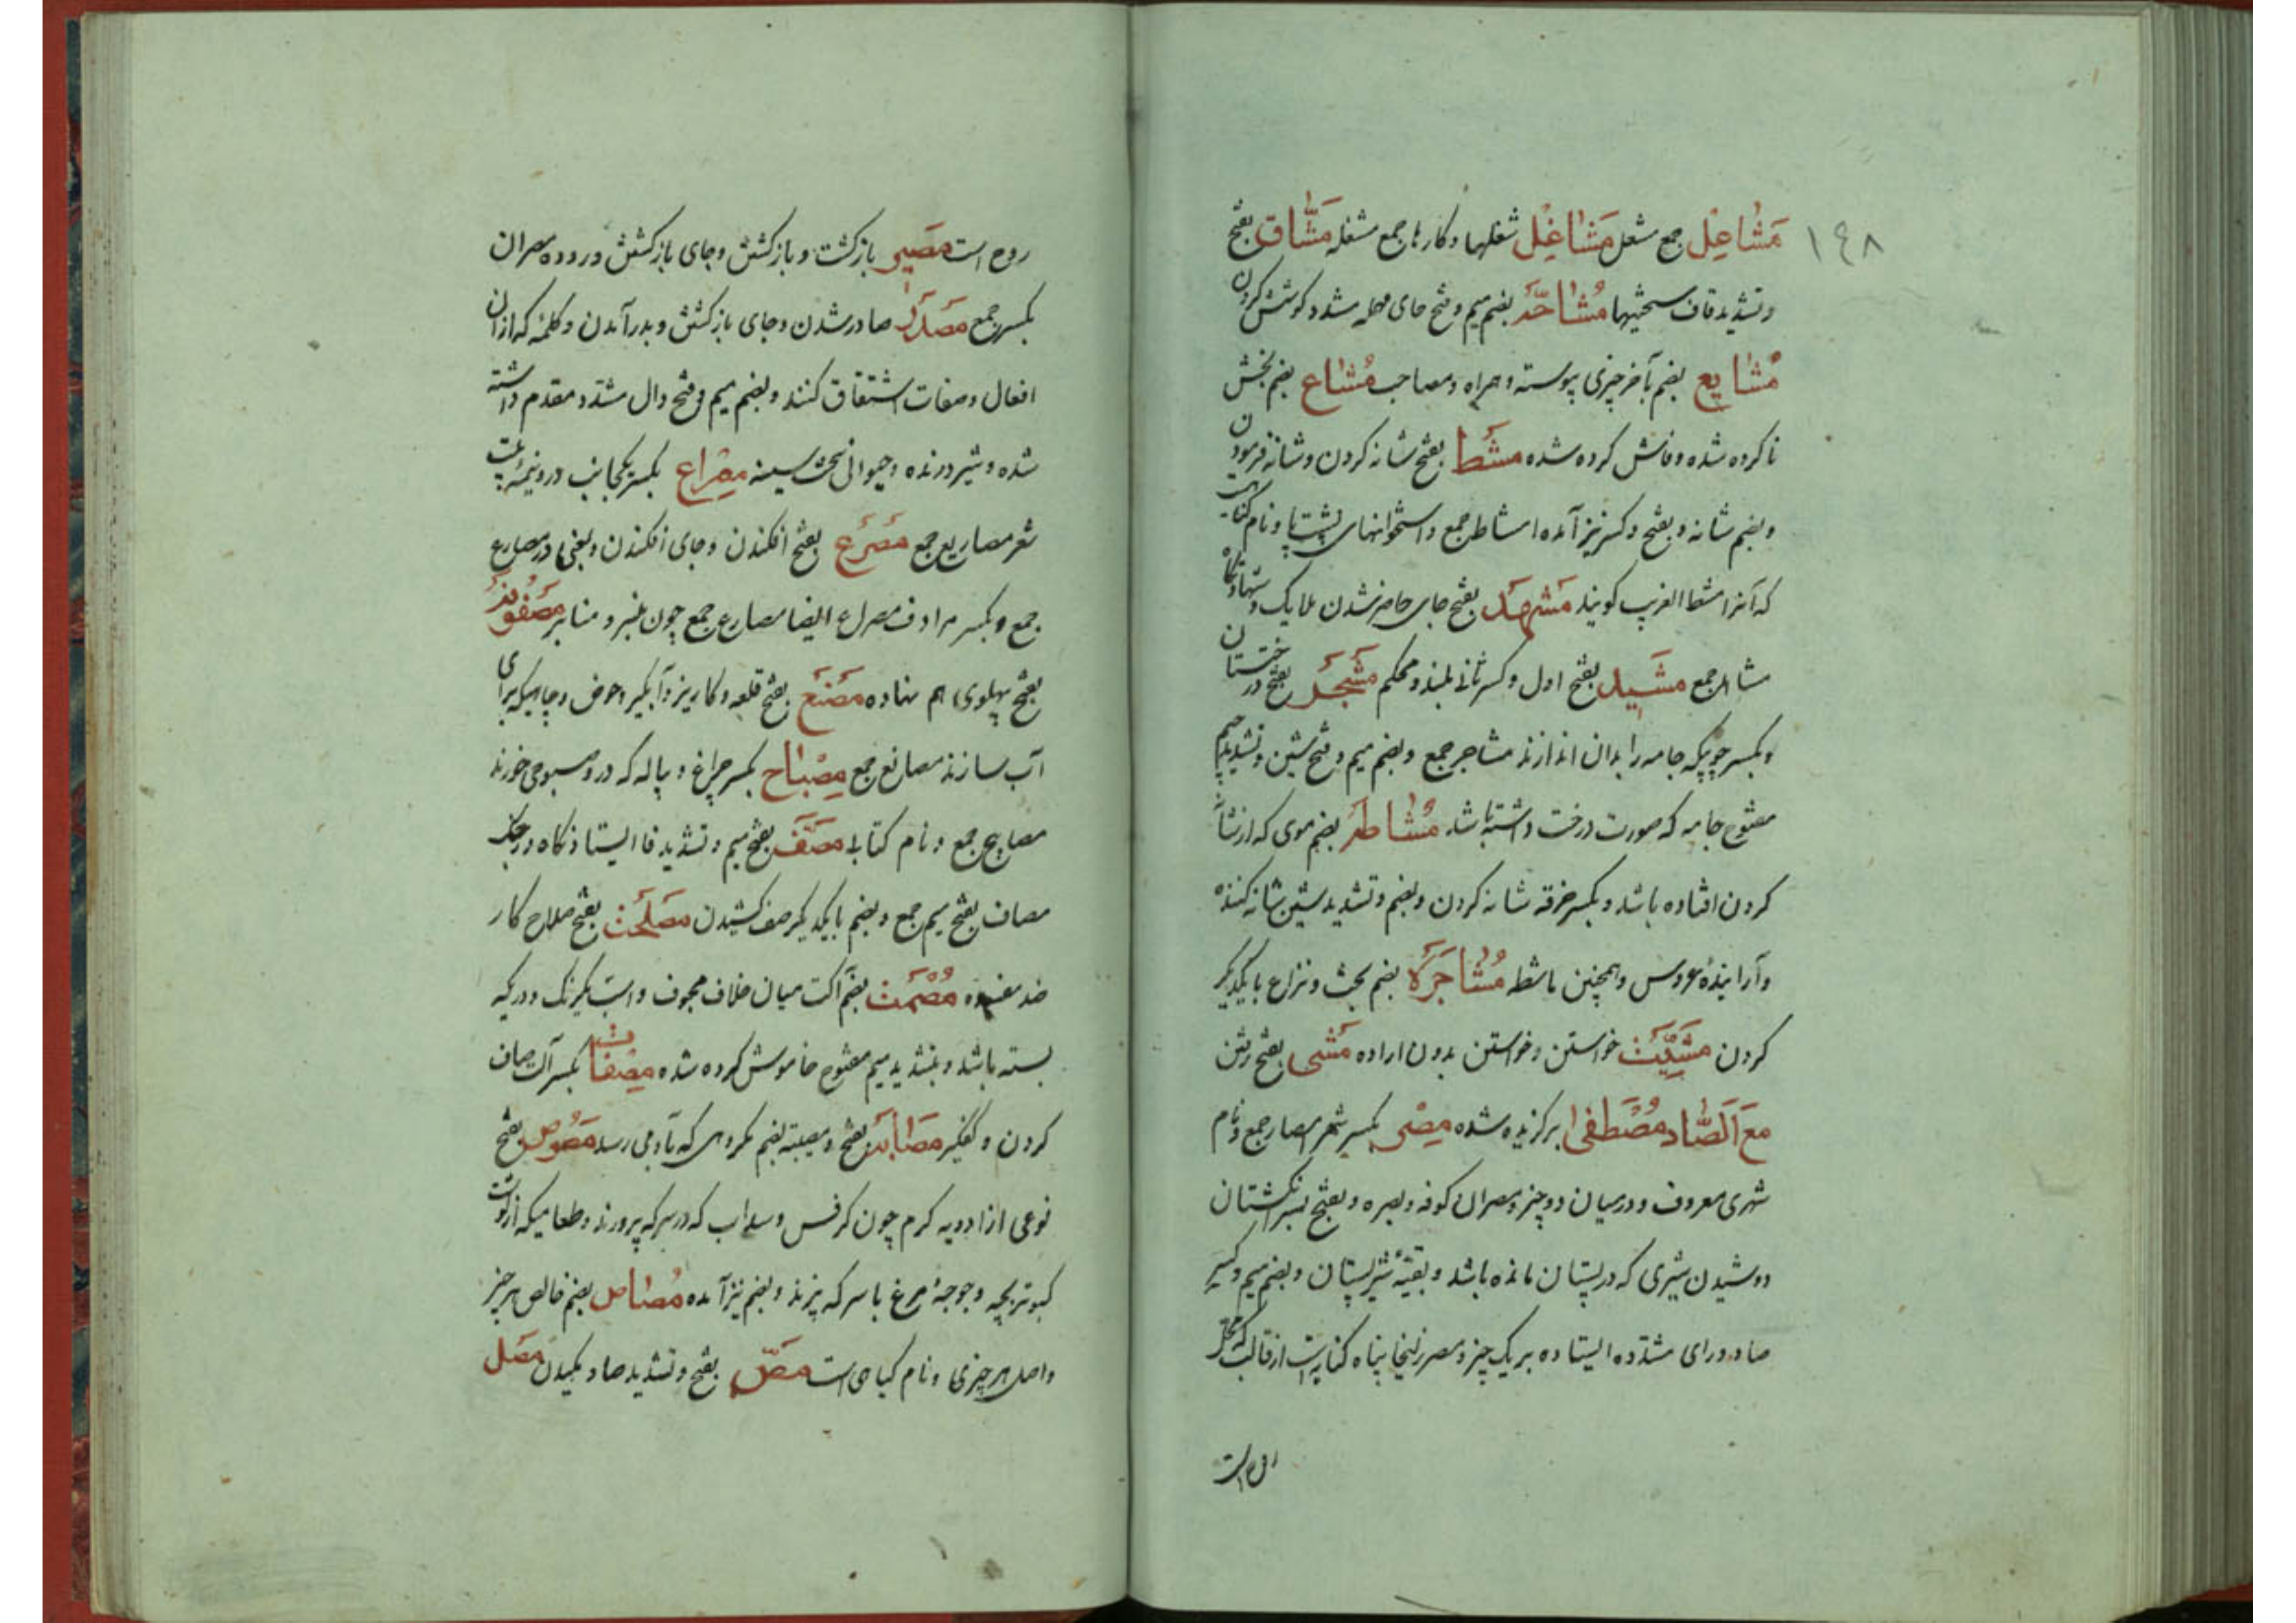 ١٤٨
مَشَاعِل جمع مشعل مَشَاغِل شغلها و کارها جمع مشغله مَشَّاق بفتح
و تشدید قاف سختیها مُشَاحَّه بضم میم و فتح حای مهمله مشدد کوشش کردن
مُشَایع بضم بآخر چیزی پیوسته و همراه و مصاحب مُشَاع بضم بخش
نا کرده شده و فاش کرده شده مَشط بفتح شانه کردن و شانه فرمودن
و بضم شانه و بفتح و کسر نیز آمده امشاط جمع و استخوانهای پشت پا و نام گیاهیست
که آنرا مشط الغریب کویند مَشهَد بفتح جای حاضر شدن ملایک و شهادتگاه
مشاهد جمع مَشِید بفتح اول و کسر ثانی بلند و محکم مَشجَر بفتح درختستان
و بکسر چوبیکه جامه را بدان اندازند مشاجر جمع و بضم میم و فتح شین و تشدید جیم
مفتوح جامه که صورت درخت داشته باشد مُشَاطَه بضم موی که از شانه
کردن افتاده باشد و بکسر حرفه شانه کردن و بضم و تشدید شین شانه کننده
و آراینده عروس و همچنین ماشطه مُشَاجَرَه بضم بحث و نزاع با یکدیگر
کردن مَشِیَّت خواستن و خواستن بدون اراده مَشی بفتح رفتن
مَعَ الصَّاد مُصْطَفی برکزیده شده مِصْر بکسر شهر امصار جمع و نام
شهری معروف و در میان دو چیز و مصران کوفه و بصره و بفتح بسر انکشتان
دوشیدن شیری که در پستان مانده باشد و بقیّهٔ شیر پستان و بضم میم و کسر
صاد و رای مشدّده ایستاده بر یک چیز و مصر زلیخا پناه کنایت از قالب که محل
روح است
روح است مَصِیر بازکشت و بازکشتن و جای بازکشتن و روده مصران
بکسر جمع مَصدَر صادر شدن و جای بازکشتن و بدر آمدن و کلمهٔ که از ان
افعال و صفات اشتقاق کنند و بضم میم و فتح دال مشدد مقدم داشته
شده و شیر درنده و حیوانی سخت سینه مِصْراع بکسر یکجانب در و نیمهٔ بیت
شعر مصاریع جمع مَصرَع بفتح افکندن و جای افکندن و بفتح را در مصارع
جمع و بکسر مرادف مصراع ایضا مصارع جمع چون منبر و منابر مَصفُوفَه
بفتح پهلوی هم نهاده مَصنَع بفتح قلعه و کاریز و آبگیر و حوض و چاهیکه برای
آب سازند مصانع جمع مِصْبَاح بکسر چراغ و پیاله که در و صبوحی خورند
مصابیح جمع و نام کتابی مَصَفّ بفتح میم و تشدید فا ایستادنکاه در جنک
مصاف بفتح میم جمع و بضم با یکدیگر صف کشیدن مَصلَحَت بفتح صلاح کار
ضد مفسده مُصْمَت بضم آکنده میان خلاف مجوف و اسب یکرنک و در که
بسته باشد و بتشدید میم مفتوح خاموش کرده شده مِصْفات بکسر آلت صاف
کردن و کفکیر مَصَائب بفتح و مصیبت بضم مکروهی که بآدمی رسد مَصُوص بفتح
نوعی از ادویه کرم چون کرفس و سداب که در سرکه پرورند و طعامیکه از کوشت
کبوتر بچه و جوجهٔ مرغ با سرکه پزند و بضم نیز آمده مُصَاص بضم خالص هر چیز
و اصل هر چیزی و نام کیاهی است مَصّ بفتح و تشدید صاد مکیدن مَصل